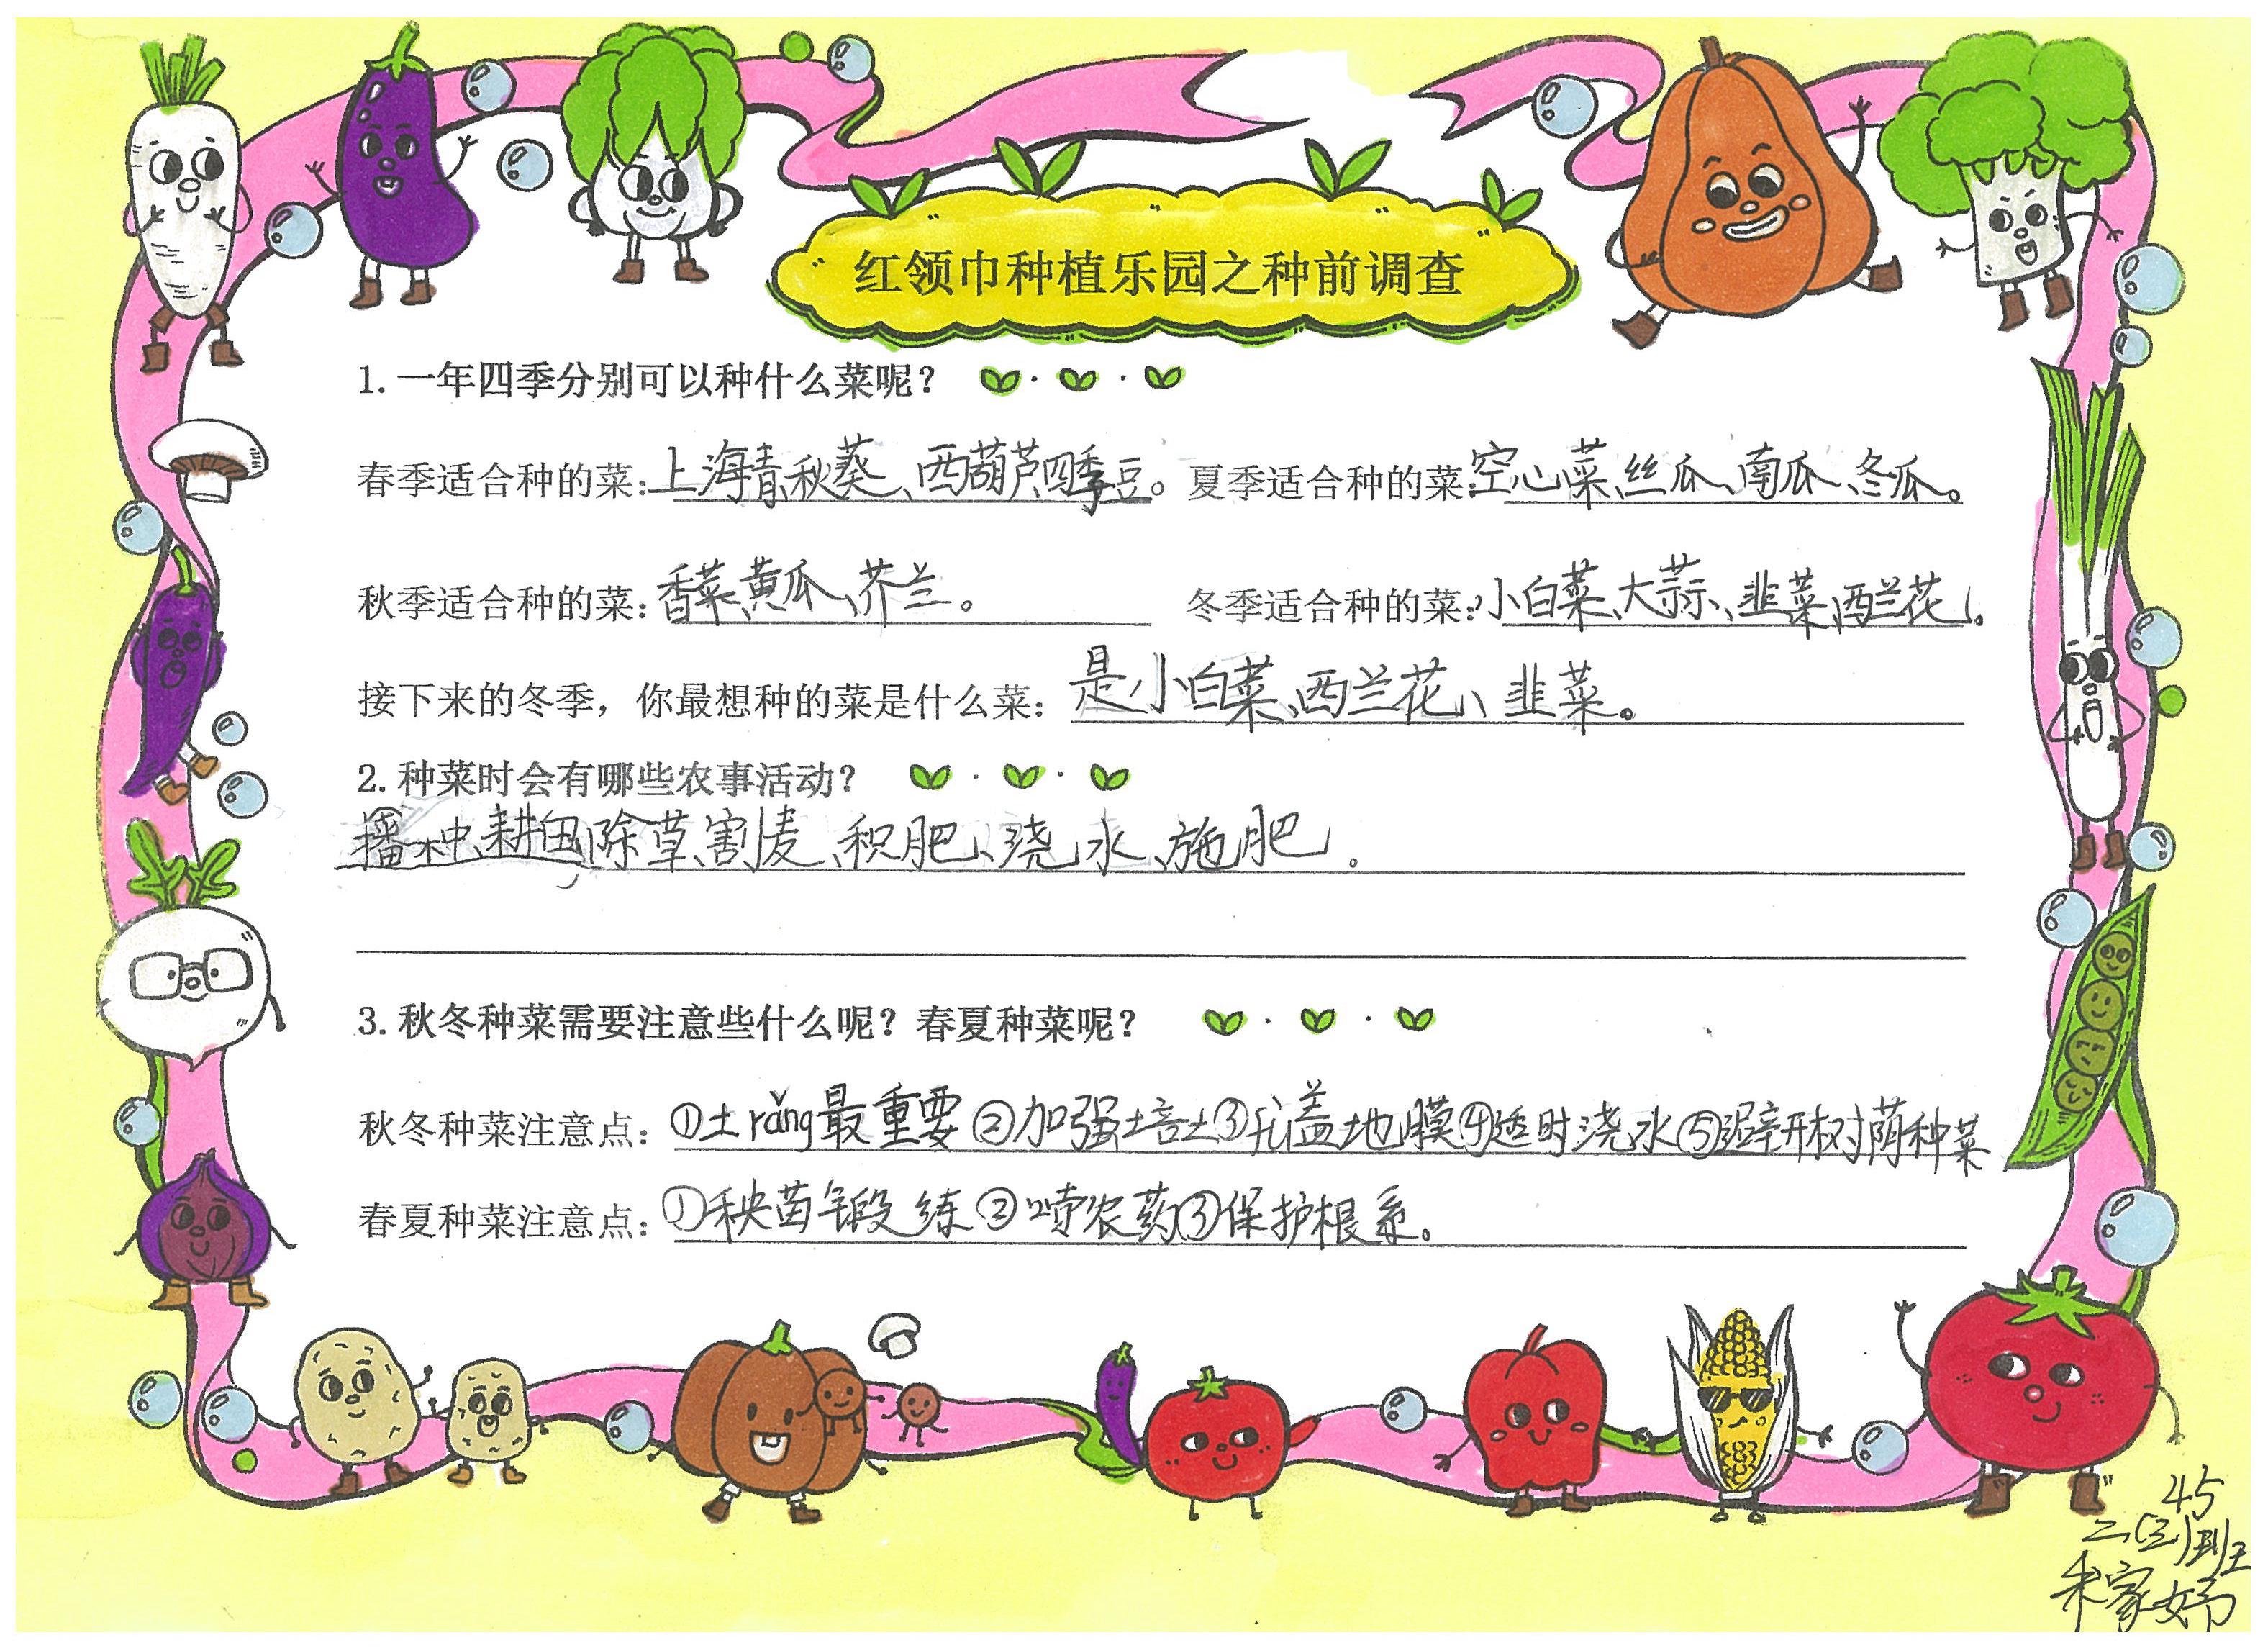 红领巾种植乐园之种前调查
1. 一年四季分别可以种什么菜呢？
春季适合种的菜：上海青、秋葵、西葫芦、四季豆。 夏季适合种的菜：空心菜、丝瓜、南瓜、冬瓜。
秋季适合种的菜：香菜、黄瓜、芥兰。 冬季适合种的菜：小白菜、大蒜、韭菜、西兰花。
接下来的冬季，你最想种的菜是什么菜：是小白菜、西兰花、韭菜。
2. 种菜时会有哪些农事活动？
播种、耕田、除草、割麦、积肥、浇水、施肥。
3. 秋冬种菜需要注意些什么呢？春夏种菜呢？
秋冬种菜注意点：①土rǎng最重要②加强培土③加盖地膜④适时浇水⑤避开树荫种菜
春夏种菜注意点：①秧苗锻练②喷农药③保护根系。
45
二(3)班
家妤